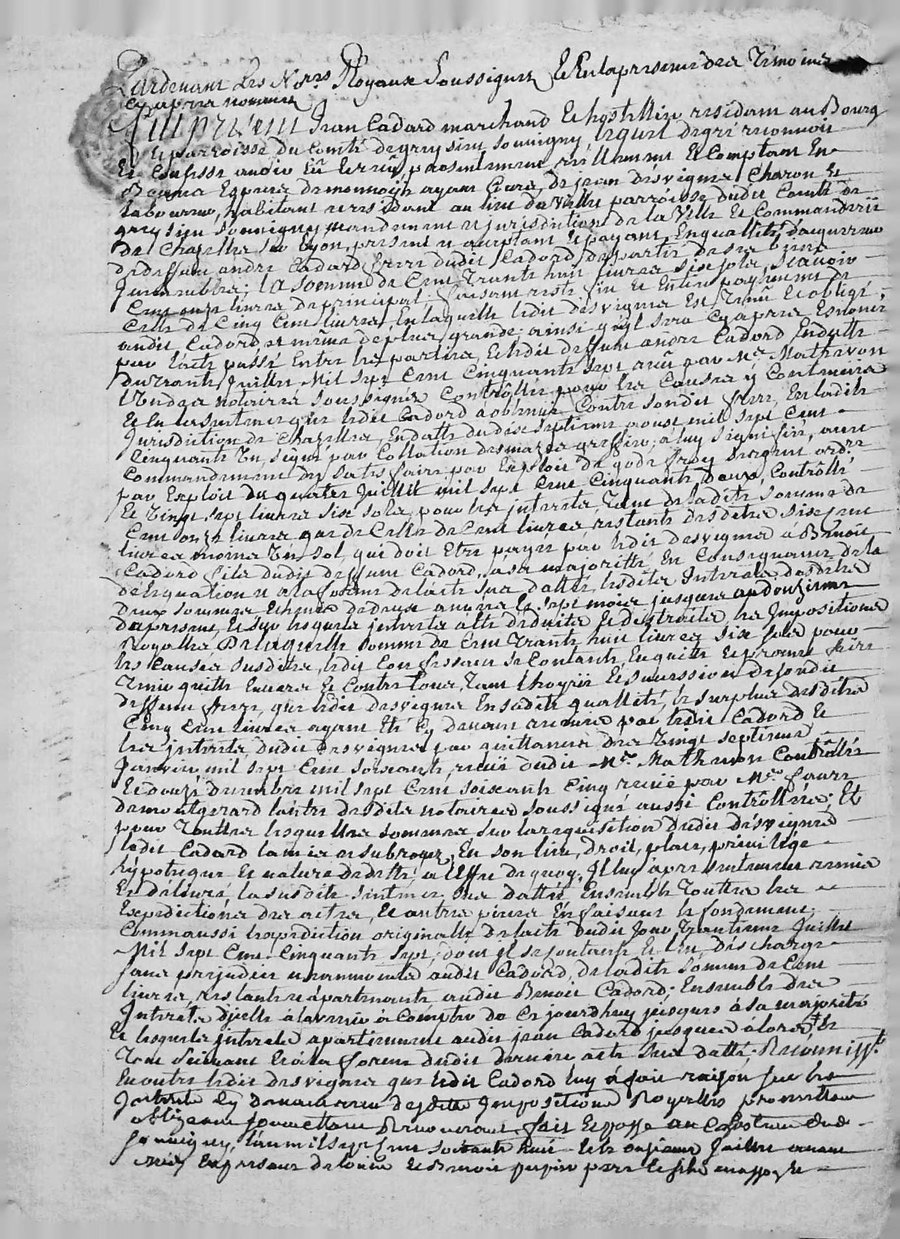 Pardevant Les No.res Royaux Soussignes Et En la presence des Temoins
cy apres nommes
fut present Jean Cadord marchand Et hostellier residant au Bourg
Et parroisse du Comté de grezieu Souvigny Lequel de gré reconnoit
Et Confesse avoir Eu Et reçu presentement reellement Et Comptant En
Especes de monnoye ayant Cours, de jean desvignes Charon Et
laboureur, habitant et residant au lieu de parroisse dudit Comté de
grezieu Souvigny mandement et jurisdiction de la Ville Et Commanderie
De Chazelles sur Lyon, present et acceptant Et payant, En qualité d'acquereur
de deffunt andré Cadord frere dudit Cadord, de partie de ses biens
Immeubles; la Somme de Cent Trante huit livres Six sols, Scavoir
Cent onze livres de principal faisant reste fin Et Entier payement de
Celle de Cinq Cent livres, En laquelle ledit desvignes Est Tenu Et obligé
audit Cadord et meme de plus grande, ainsi qu'il Sera Cy apres Enoncé
par l'acte passé Entre les parties, Et ledit deffunt andré Cadord En datte
du Trante Juillet Mil Sept Cent Cinquante Sept reçu par Me. Mathevon
L'un des notaires Soussignes Controllé pour les Causes y Contenues
Et En la Sentence que ledit Cadord a obtenue Contre Sondit frere, En ladite
Jurisdiction de Chazelles, En datte du dix Septieme aoust mil Sept Cent
Cinquante Un, Signé par Collation desmazes greffier, a luy Signifiée, avec
Commandement d'y Satisfaire par Exploit de godefroy Sergent ord.re
par Exploit du quatre Juillet mil Sept Cent Cinquante deux, Controllé
Et Vingt Sept livres Six Sols, pour les interets, Tant de ladite Somme de
Cent onze livres que de Celle de Cent livres restante desdites Six Cent
livres moins Un Sol, qui doit Etre payée par ledit desvignes à Benoit
Cadord fils dudit deffunt Cadord, a sa majorité En Consequence de la
delegation et a la forme de l'acte Sus datté, lesdits Interets desdites
deux Sommes Echues de deux annees Et Sept mois jusques au douzieme
du present, Et Sur lesquels interets a été deduite Et distraite les Impositions
Royalles De laquelle Somme de Cent Trante huit livres Six Sols pour
les Causes Susdites, ledit Confessant Se Contente, En quitte Et promet faire
Tenir quitte Envers Et Contre Tous, Tant l'hoyrie Et Succession de Sondit
deffunt frere, que ledit desvignes En Sadite qualité, le Surplus desdites
Cinq Cent livres ayant Eté Cy devant par ledit Cadord Et
les interets dudit desvignes par quittances des Vingt Septieme
Janvier mil Sept Cent Soixante, reçuë dudit Me. Mathevon Controllée
Et douze decembre mil Sept Cent Soixante Cinq reçuë par Me. faure
de montgerard l'autre desdits notaires Soussignés aussi Controllées; Et
pour Touttes lesquelles Sommes Sur la requisition dudit desvignes
ledit Cadord l'a mis et subrogé, En Son lieu, droit, place, privilege
hypoteque Et nature de dette; a l'effet de quoy, Il luy a presentement remis
Et delivré, la Susdite Sentence Sus dattée Ensemble Touttes les
Expeditions des actes, Et autres pieces En faisant le fondement
Comm'aussi l'expedition originalle de l'acte dudit jour Trantieme Juillet
Mil Sept Cent Cinquante Sept; dont Il Se Contante Et l'en descharge
Sans prejudice neanmoins audit Cadord, de ladite Somme de Cent
livres, restante et apartenante audit Benoit Cadord; Ensemble des
Interets d'icelle à l'avenir à Compter de Ce jourd'huy jusques à Sa majorité
Et lesquels interets apartiennent audit jean Cadord jusques à lors, Et
Tout Suivant Et a la forme dudit dernier acte Sus datté. Reconnoiss.t
En outre ledit desvignes que ledit Cadord luy à fait raison Sur les
Interets Cy devant desdittes Impositions Royalles promettant
obligeant Soumettant Renonçant fait Et passé au Chateau dud.
Souvigny, l'an mil Sept Cent Soixante huit Et le onzieme Juillet avant
midy En presence de Et Benoit pupier pere Et fils